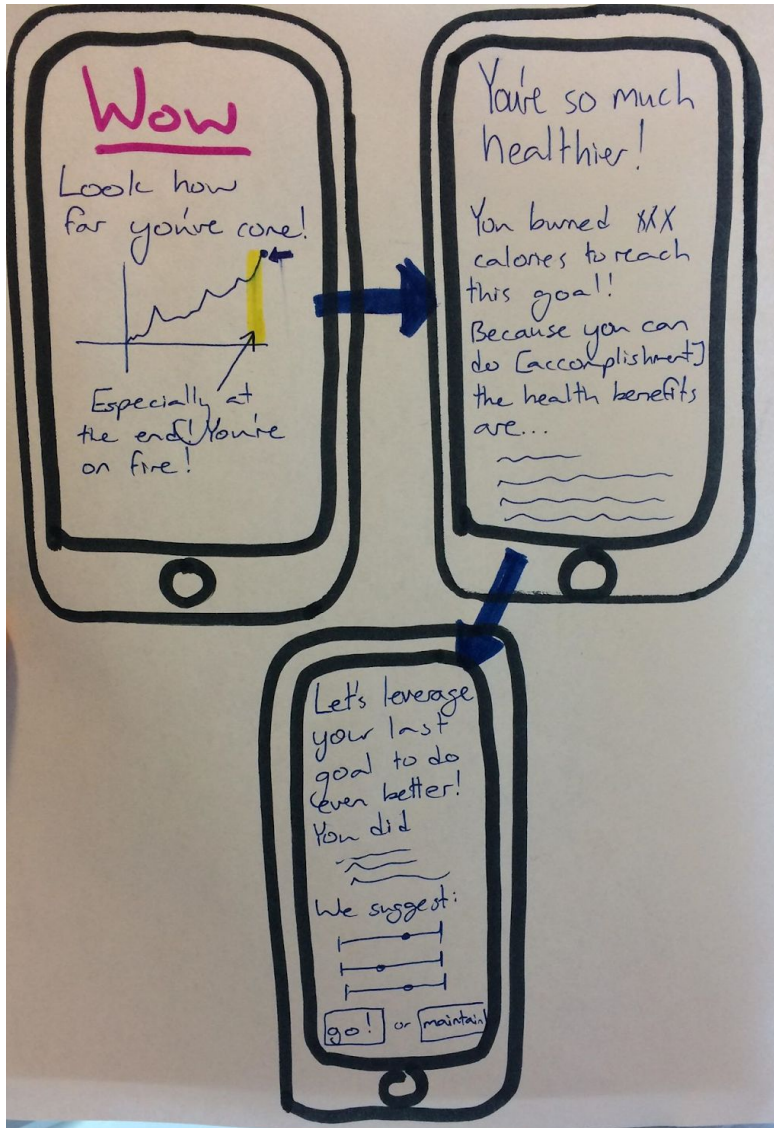 Wow
Look how
far you've come!
Especially at
the end! You're
on fire!
You're so much
healthier!
You burned XXX
calories to reach
this goal!
Because you can
do [accomplishment]
the health benefits
are...
Let's leverage
your last
goal to do
even better!
You did
We suggest:
go! or maintain